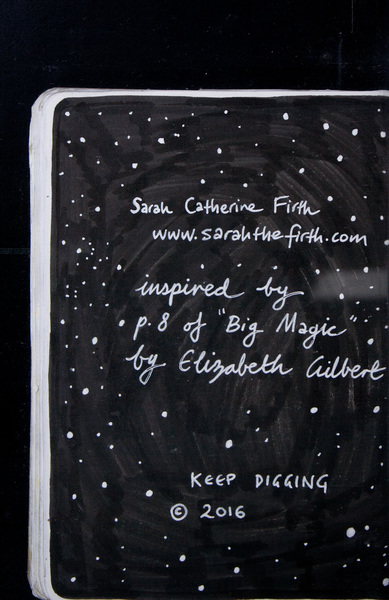 Sarah Catherine Firth
www.sarahthefirth.com
inspired by
p.8 of "Big Magic"
by Elizabeth Gilbert
KEEP DIGGING
© 2016